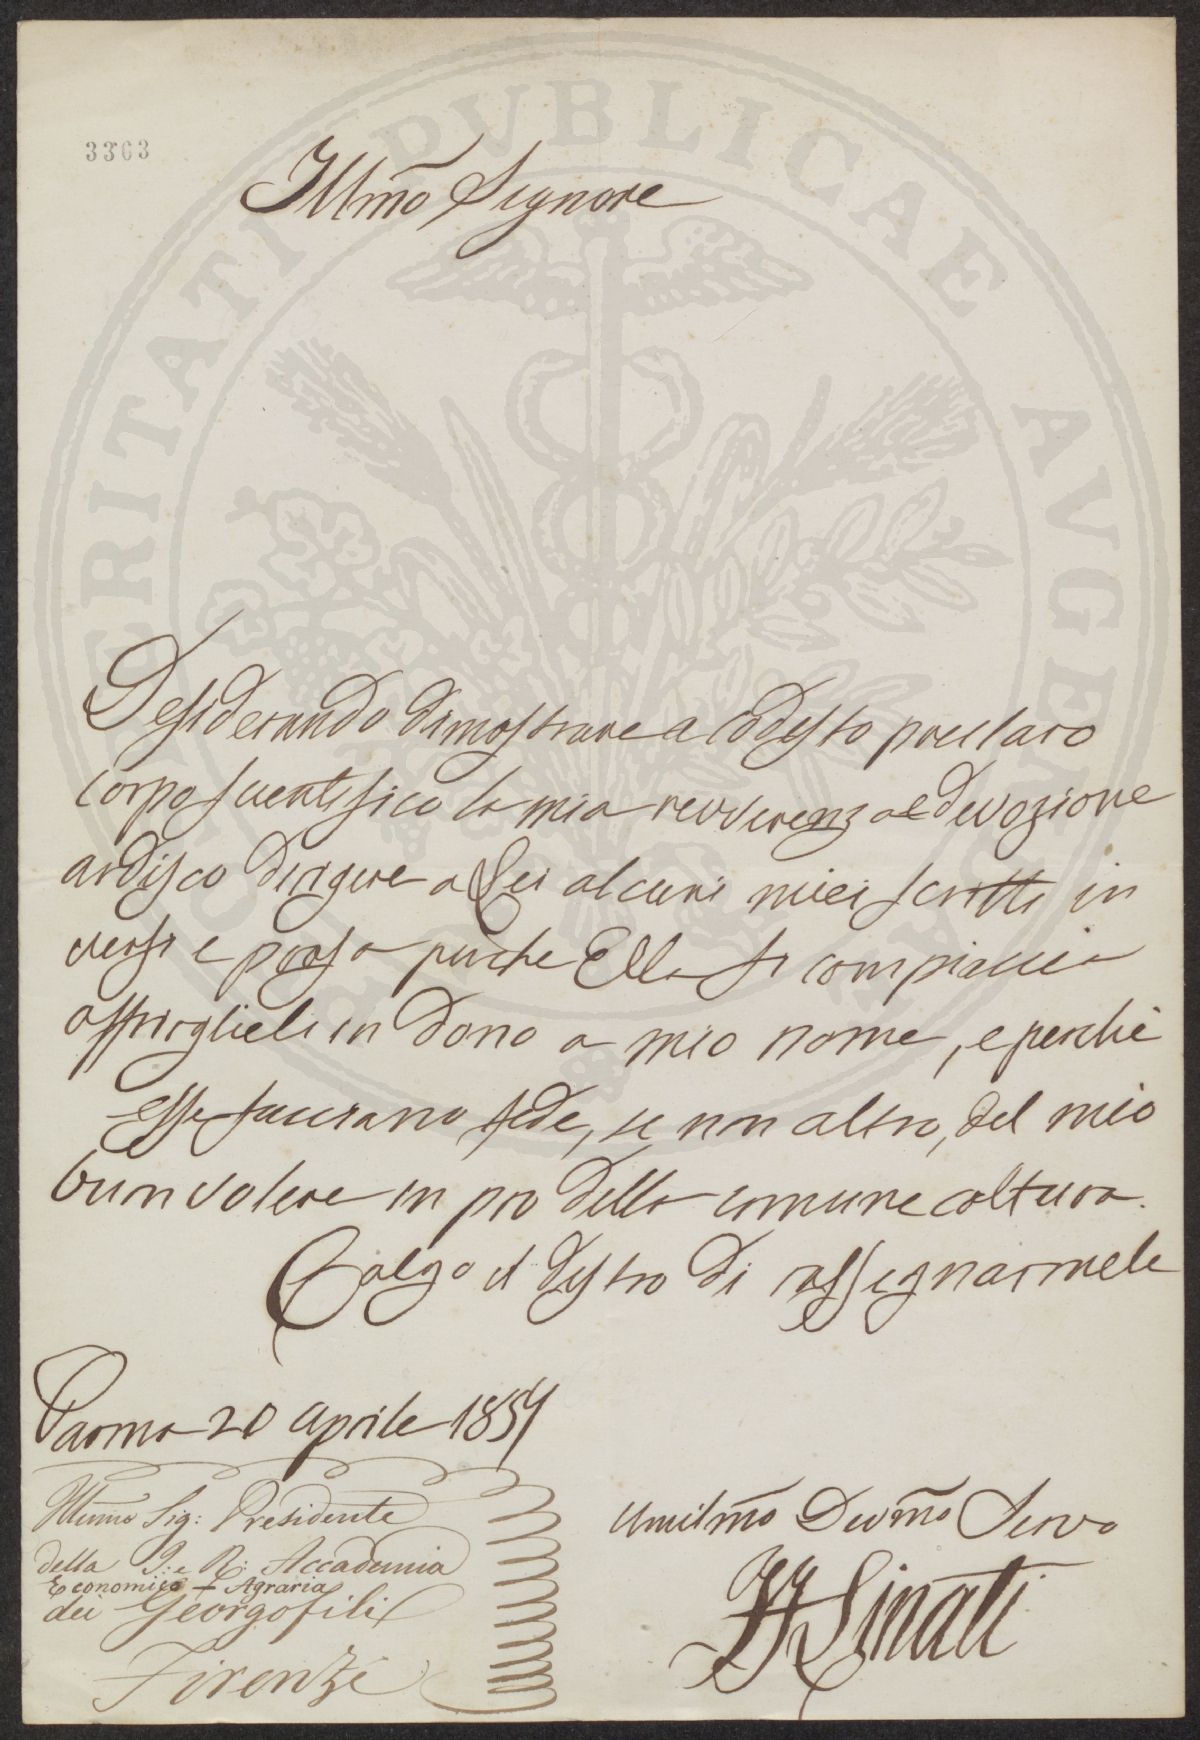 3303
Illmo Signore
Desiderando dimostrare a codesto preclaro
corpo scientifico la mia reverenza e devozione
ardisco dirigere a Lei alcuni miei scritti in
versi e prosa perchè Ella si compiaccia
offrirglieli in dono a mio nome, e perchè
essi facciano fede, se non altro, del mio
buon volere in pro della comune coltura.
Colgo il destro di rassegnarmele
Parma 20 aprile 1857
Illumo Sig: Presidente
della I: e R: Accademia
Economico + Agraria
dei Georgofili
Firenze
Umilmo Devmo Servo
Sinati
PROSPERITATI PVBLICAE AVGENDAE